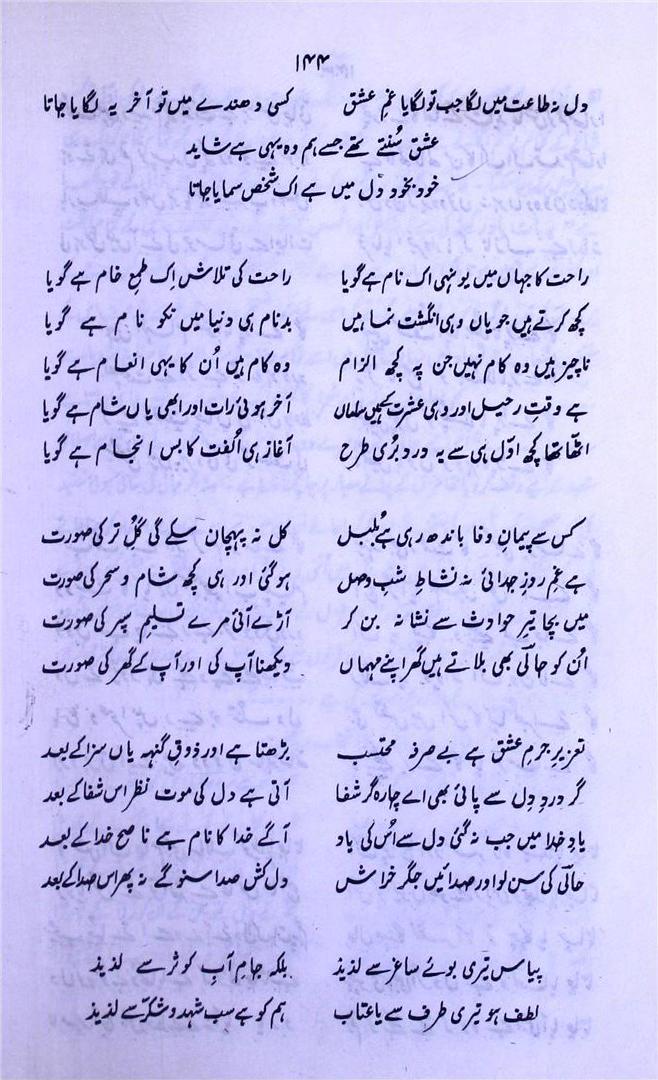 ۱۴۴
دل نہ طاعت میں لگا جب تو لگایا غمِ عشق کسی دھندے میں تو آخر یہ لگایا جاتا
عشق سُنتے تھے جسے ہم وہ یہی ہے شاید
خود بخود دل میں ہے اک شخص سمایا جاتا
راحت کا جہاں میں یونہی اک نام ہے گویا راحت کی تلاش اِک طمعِ خام ہے گویا
کچھ کرتے ہیں جو یاں وہی انگشت نما ہیں بدنام ہی دنیا میں نکو نام ہے گویا
ناچیز ہیں وہ کام نہیں جن پہ کچھ الزام وہ کام ہیں اُن کا یہی انعام ہے گویا
ہے وقتِ رحیل اور وہی عشرت کے ہیں ساماں آخر ہوئی رات اور ابھی یاں شام ہے گویا
اٹھا تھا کچھ اوّل ہی سے یہ درد بُری طرح آغاز ہی اُلفت کا بس انجام ہے گویا
کس سے پیمانِ وفا باندھ رہی ہے بُلبل کل نہ پہچان سکے گی گُلِ تر کی صورت
ہے غمِ روزِ جدائی نہ نشاطِ شبِ وصل ہو گئی اور ہی کچھ شام و سحر کی صورت
میں بچا تیرِ حوادث سے نشانہ بن کر آڑے آئی مرے تسلیم سپر کی صورت
اُن کو حالیؔ بھی بلاتے ہیں گھر اپنے مہماں دیکھنا آپ کی اور آپ کے گھر کی صورت
تعزیرِ جرمِ عشق ہے بے صرفہ محتسب بڑھتا ہے اور ذوقِ گنہ یاں سزا کے بعد
گر دردِ دل سے پائی بھی اے چارہ گر شفا آتی ہے دل کی موت نظر اس شفا کے بعد
یادِ خدا میں جب نہ گئی دل سے اُس کی یاد آگے خدا کا نام ہے ناصح خدا کے بعد
حالیؔ کی سن لو اور صدائیں جگر خراش دل کش صدا سنو گے نہ پھر اس صدا کے بعد
پیاس تیری بوئے ساغر سے لذیذ بلکہ جامِ آبِ کوثر سے لذیذ
لطف ہو تیری طرف سے یا عتاب ہم کو ہے سب شہد و شکّر سے لذیذ